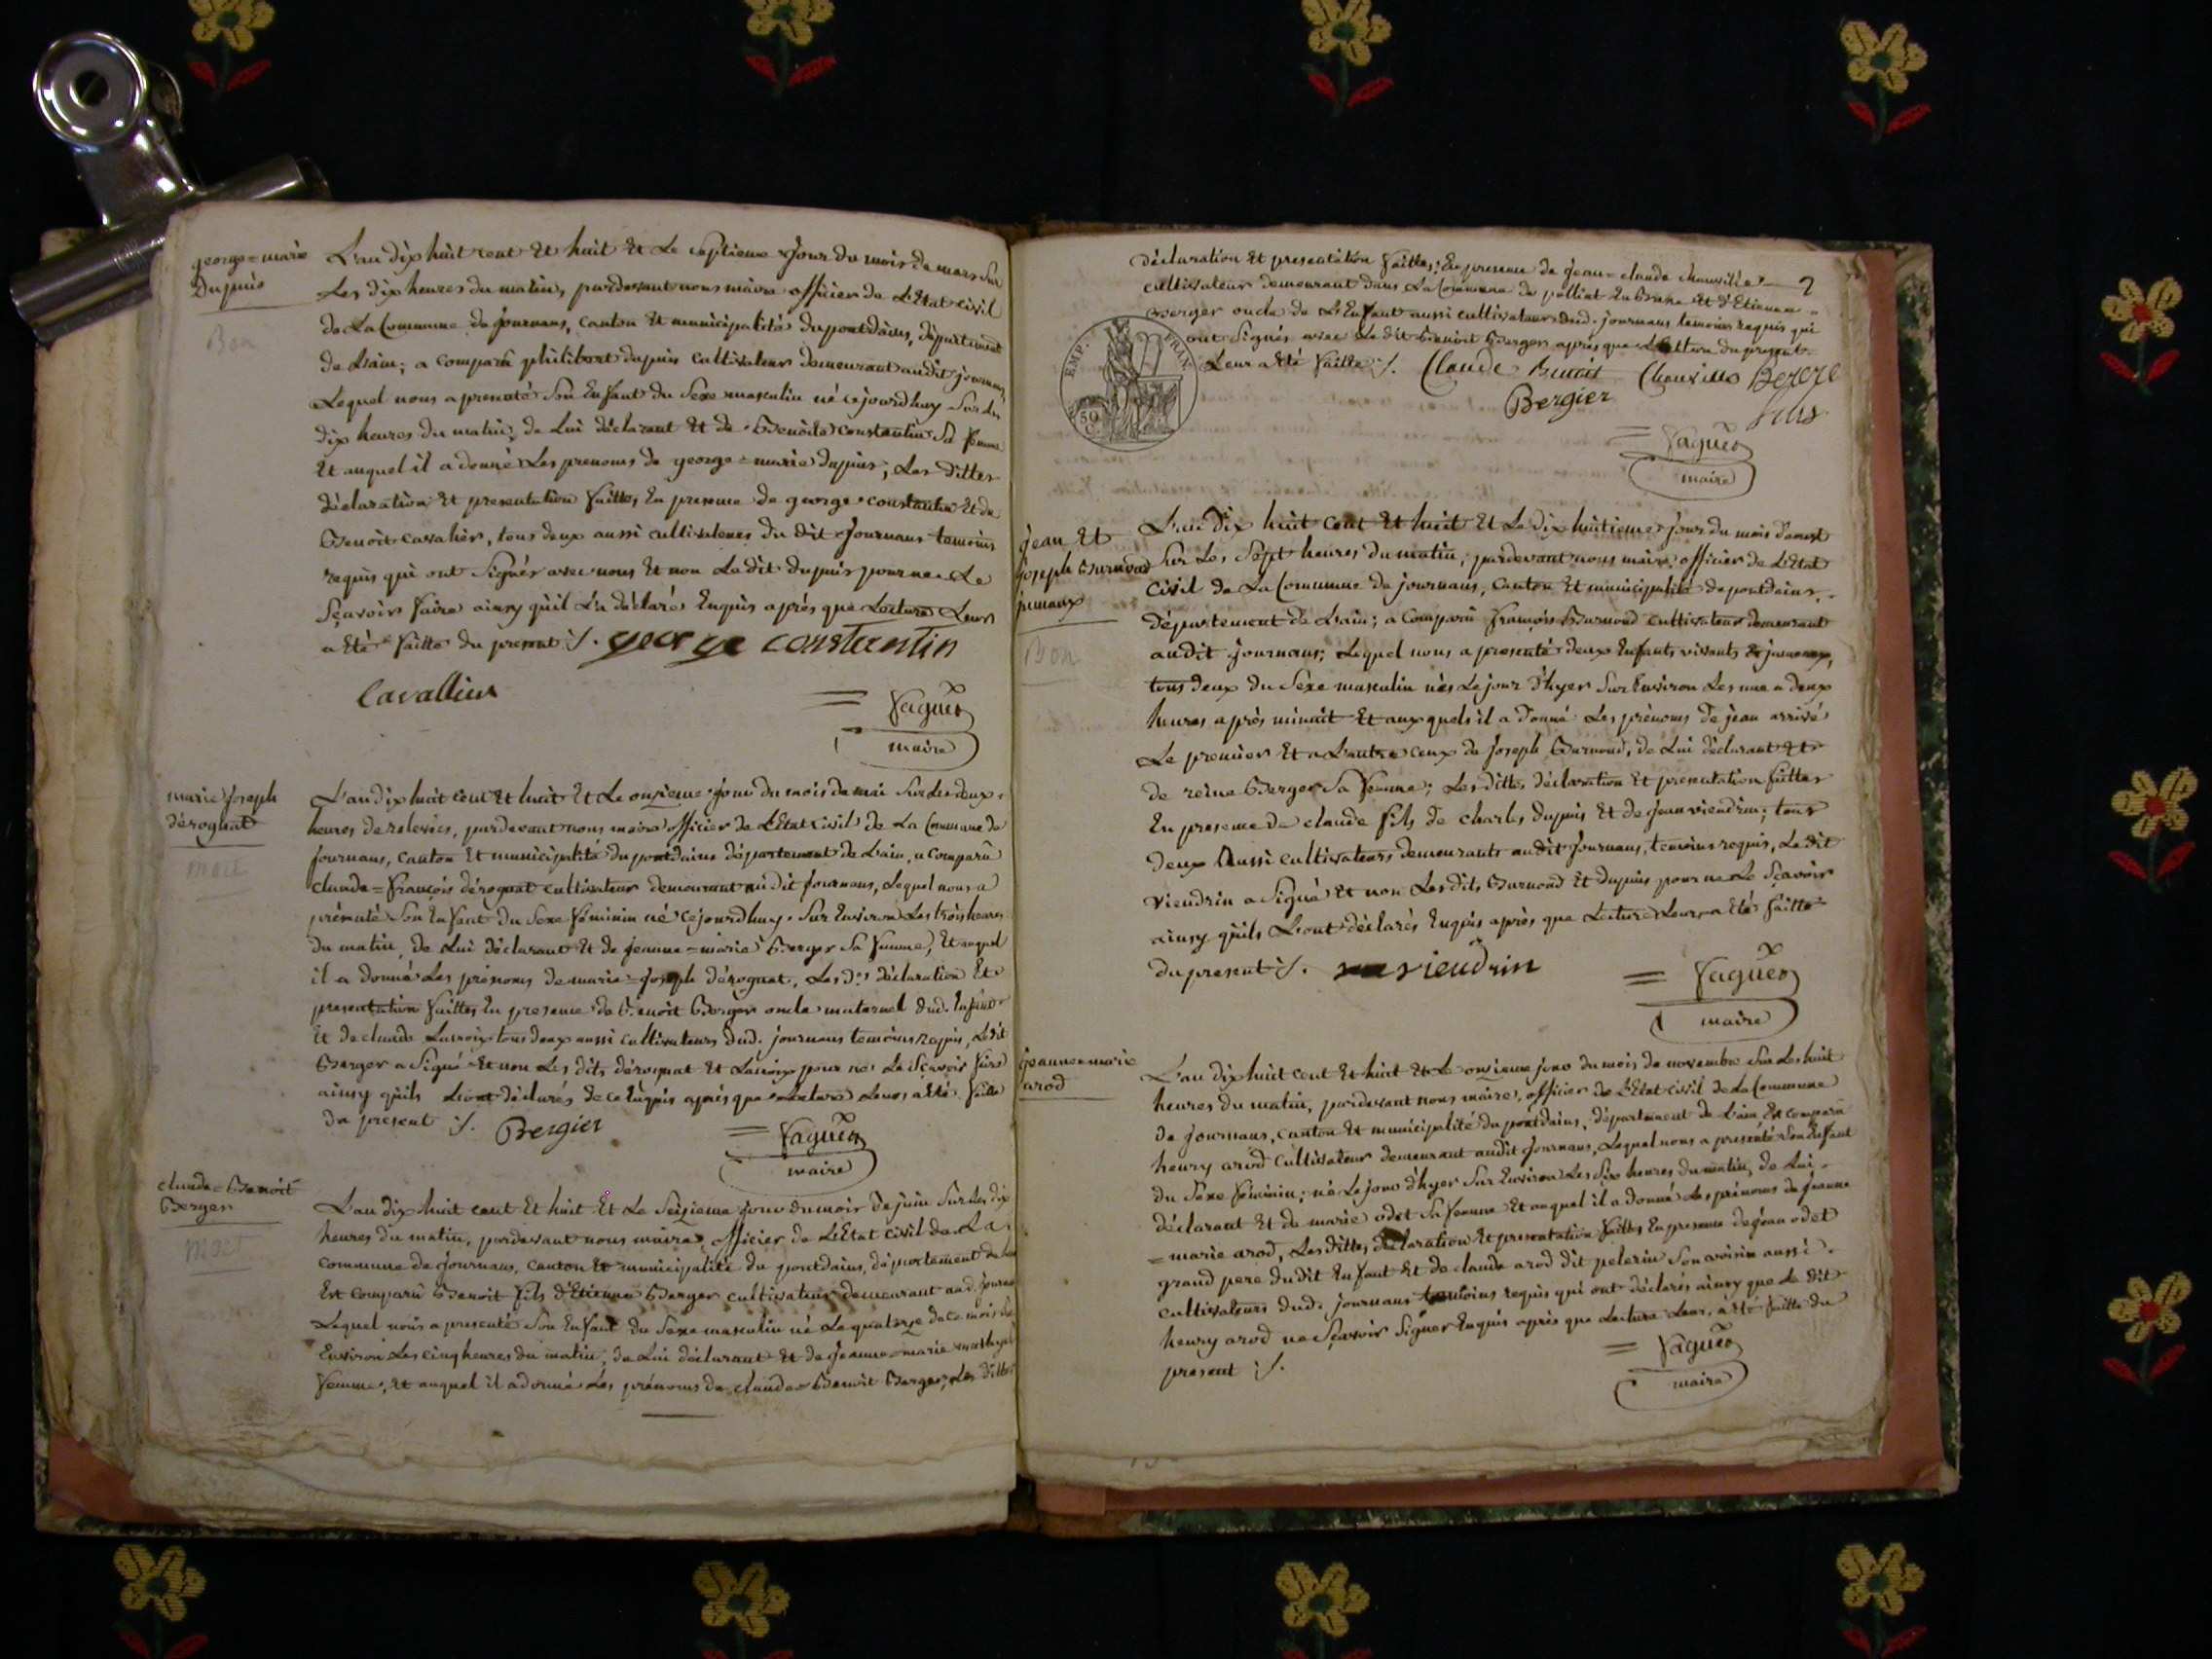 george = marie
Dupuis
Bon
L'an dix huit cent et huit et le septieme jour du mois de mars sur
les dix heures du matin, pardevant nous maire officier de l'Etat civil
de la Commune de journans, canton et municipalité du pontdains, département
de l'ain; a comparû philibert dupuis cultivateur demeurant audit journans,
Lequel nous a presenté son Enfant du Sexe masculin né cejourdhuy sur les
dix heures du matin, de Lui déclarant et de Benoite Constantin sa femme
Et auquel il a donné Les prenoms de george = marie dupuis, Les dittes
déclaration et presentation faittes En presence de george Constantin Et de
Benoit Cavalier, tous deux aussi cultivateurs du dit journans temoins
requis qui ont Signés avec nous Et non Le dit dupuis pour ne Le
Sçavoir faire ainsy qu'il L'a déclaré Enquis après que Lecture Leurs
a Eté faitte du present ./. george constantin
Cavallier
= Vaguer
maire
marie joseph
dérognat
mort
L'an dix huit cent Et huit Et Le onzieme jour du mois de mai Sur Les deux
heures de relevées, pardevant nous maire officier de L'Etat Civil de La Commune de
journans, canton Et municipalité du pontdains département de L'ain, a comparû
claude = françois dérognat cultivateur demeurant audit journans, Lequel nous a
présenté Son Enfant du Sexe féminin né cejourdhuy Sur Environ Les trois heures
du matin, de Lui déclarant Et de jeanne = marie Berger Sa femme, Et auquel
il a donné Les prénoms de marie = joseph dérognat, Les d.es déclaration Et
presentation faittes En presence de Benoit Berger oncle maternel dud. Enfant
Et de claude Lacroix tous deux aussi cultivateurs dud. journans temoins requis, Ledit
Berger a Signé Et non Les dits dérognat Et Lacroix pour ne Le Sçavoir faire
ainsy quils L'ont déclarés de ce Enquis après que Lecture Leurs a Eté faitte
du present ./. Bergier
= Vaguer
maire
claude = Benoit
Berger
mort
L'an dix huit cent Et huit Et Le Seizieme jour du mois de juin Sur Les dix
heures du matin, pardevant nous maire officier de L'Etat Civil de La
Commune de journans, canton Et municipalité du pontdains, département de
Est Comparû Benoit fils d'Etienne Berger cultivateur demeurant aud. journans
Lequel nous a presenté Son Enfant du Sexe masculin né Le quatorze de ce mois
Environ Les cinq heures du matin, de Lui déclarant Et de jeanne = marie
femme, Et auquel il a donné Les prénoms de claude = Benoit Berger, Les dittes
déclaration Et presentation faittes; En presence de jean = claude Chauville 2
cultivateur demeurant dans La Commune de polliat En Bresse Et d'Etienne
Berger oncle de L'Enfant aussi cultivateur dud. journans temoins requis qui
ont Signés avec Le dit Benoit Berger après que Lecture du present
Leur a Eté faitte ./. Claude Benoit Chauville
EMP. FRAN.
50
Bergier fils
= Vaguer
maire
jean Et
joseph Burnoud
jumeaux
Bon
L'an dix huit cent Et huit Et Le dix huitieme jour du mois d'aoust
Sur Les Sept heures du matin, pardevant nous maire officier de L'Etat
Civil de La Commune de journans, canton Et municipalité du pontdains,
département de L'ain; a Comparû françois Burnoud cultivateur demeurant
audit journans; Lequel nous a presenté deux Enfants vivants Et jumeaux,
tous deux du Sexe masculin nés Le jour d'hyer Sur Environ Les une a deux
heures après minuit Et auxquels il a donné Les prénoms de jean arrivé
Le premier Et a L'autre ceux de joseph Burnoud, de Lui déclarant Et
de reine Berger Sa femme; Les dittes déclaration Et presentation faittes
En presence de claude fils de charles dupuis Et de jean viendrin; tous
deux Aussi cultivateurs demeurants audit journans, temoins requis, Le dit
viendrin a Signé Et non Les dits Burnoud Et dupuis pour ne Le Sçavoir
ainsy quils L'ont déclarés Enquis après que Lecture Leurs a Eté faitte
du present ./. viendrin
= Vaguer
maire
jeanne = marie
arod
L'an dix huit cent Et huit Et Le onzieme jour du mois de novembre Sur Les huit
heures du matin, pardevant nous maire, officier de L'Etat Civil de La Commune
de journans, canton Et municipalité du pontdains, département de L'ain, Est comparû
henry arod cultivateur demeurant audit journans, Lequel nous a presenté Son Enfant
du Sexe féminin; né Le jour d'hyer Sur Environ Les Six heures du matin, de Lui
déclarant Et de marie odet Sa femme Et auquel il a donné Les prénoms de jeanne
= marie arod, Les dittes déclaration Et presentation faittes En presence de jean odet
grand pere dudit Enfant Et de claude arod dit pelerin Son voisin aussi
cultivateurs dud. journans temoins requis qui ont déclarés ainsy que Le dit
henry arod ne Sçavoir Signer Enquis après que Lecture Leur a Eté faitte du
present ./.
= Vaguer
maire